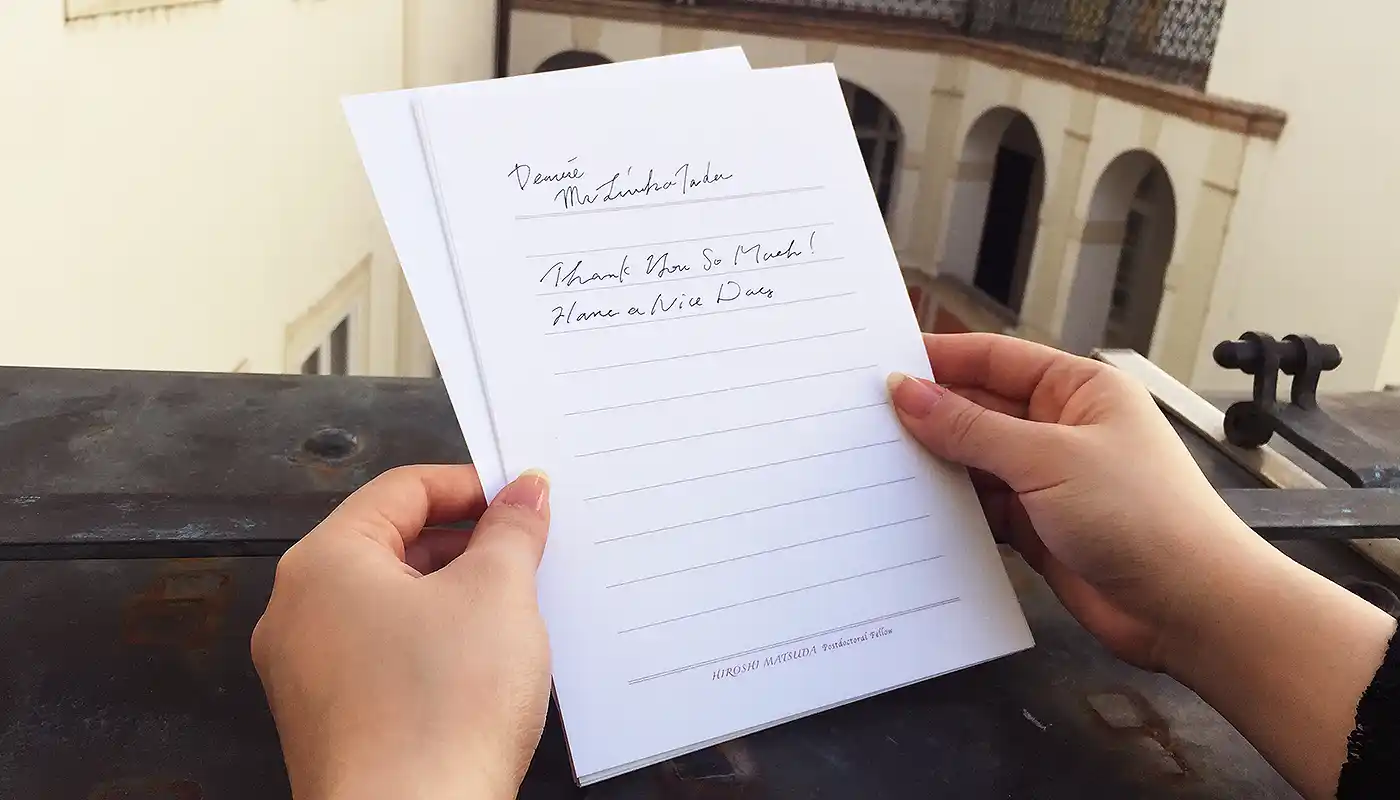 Mr
Thank You So Much!
Have a Nice Day
HIROSHI MATSUDA Postdoctoral Fellow